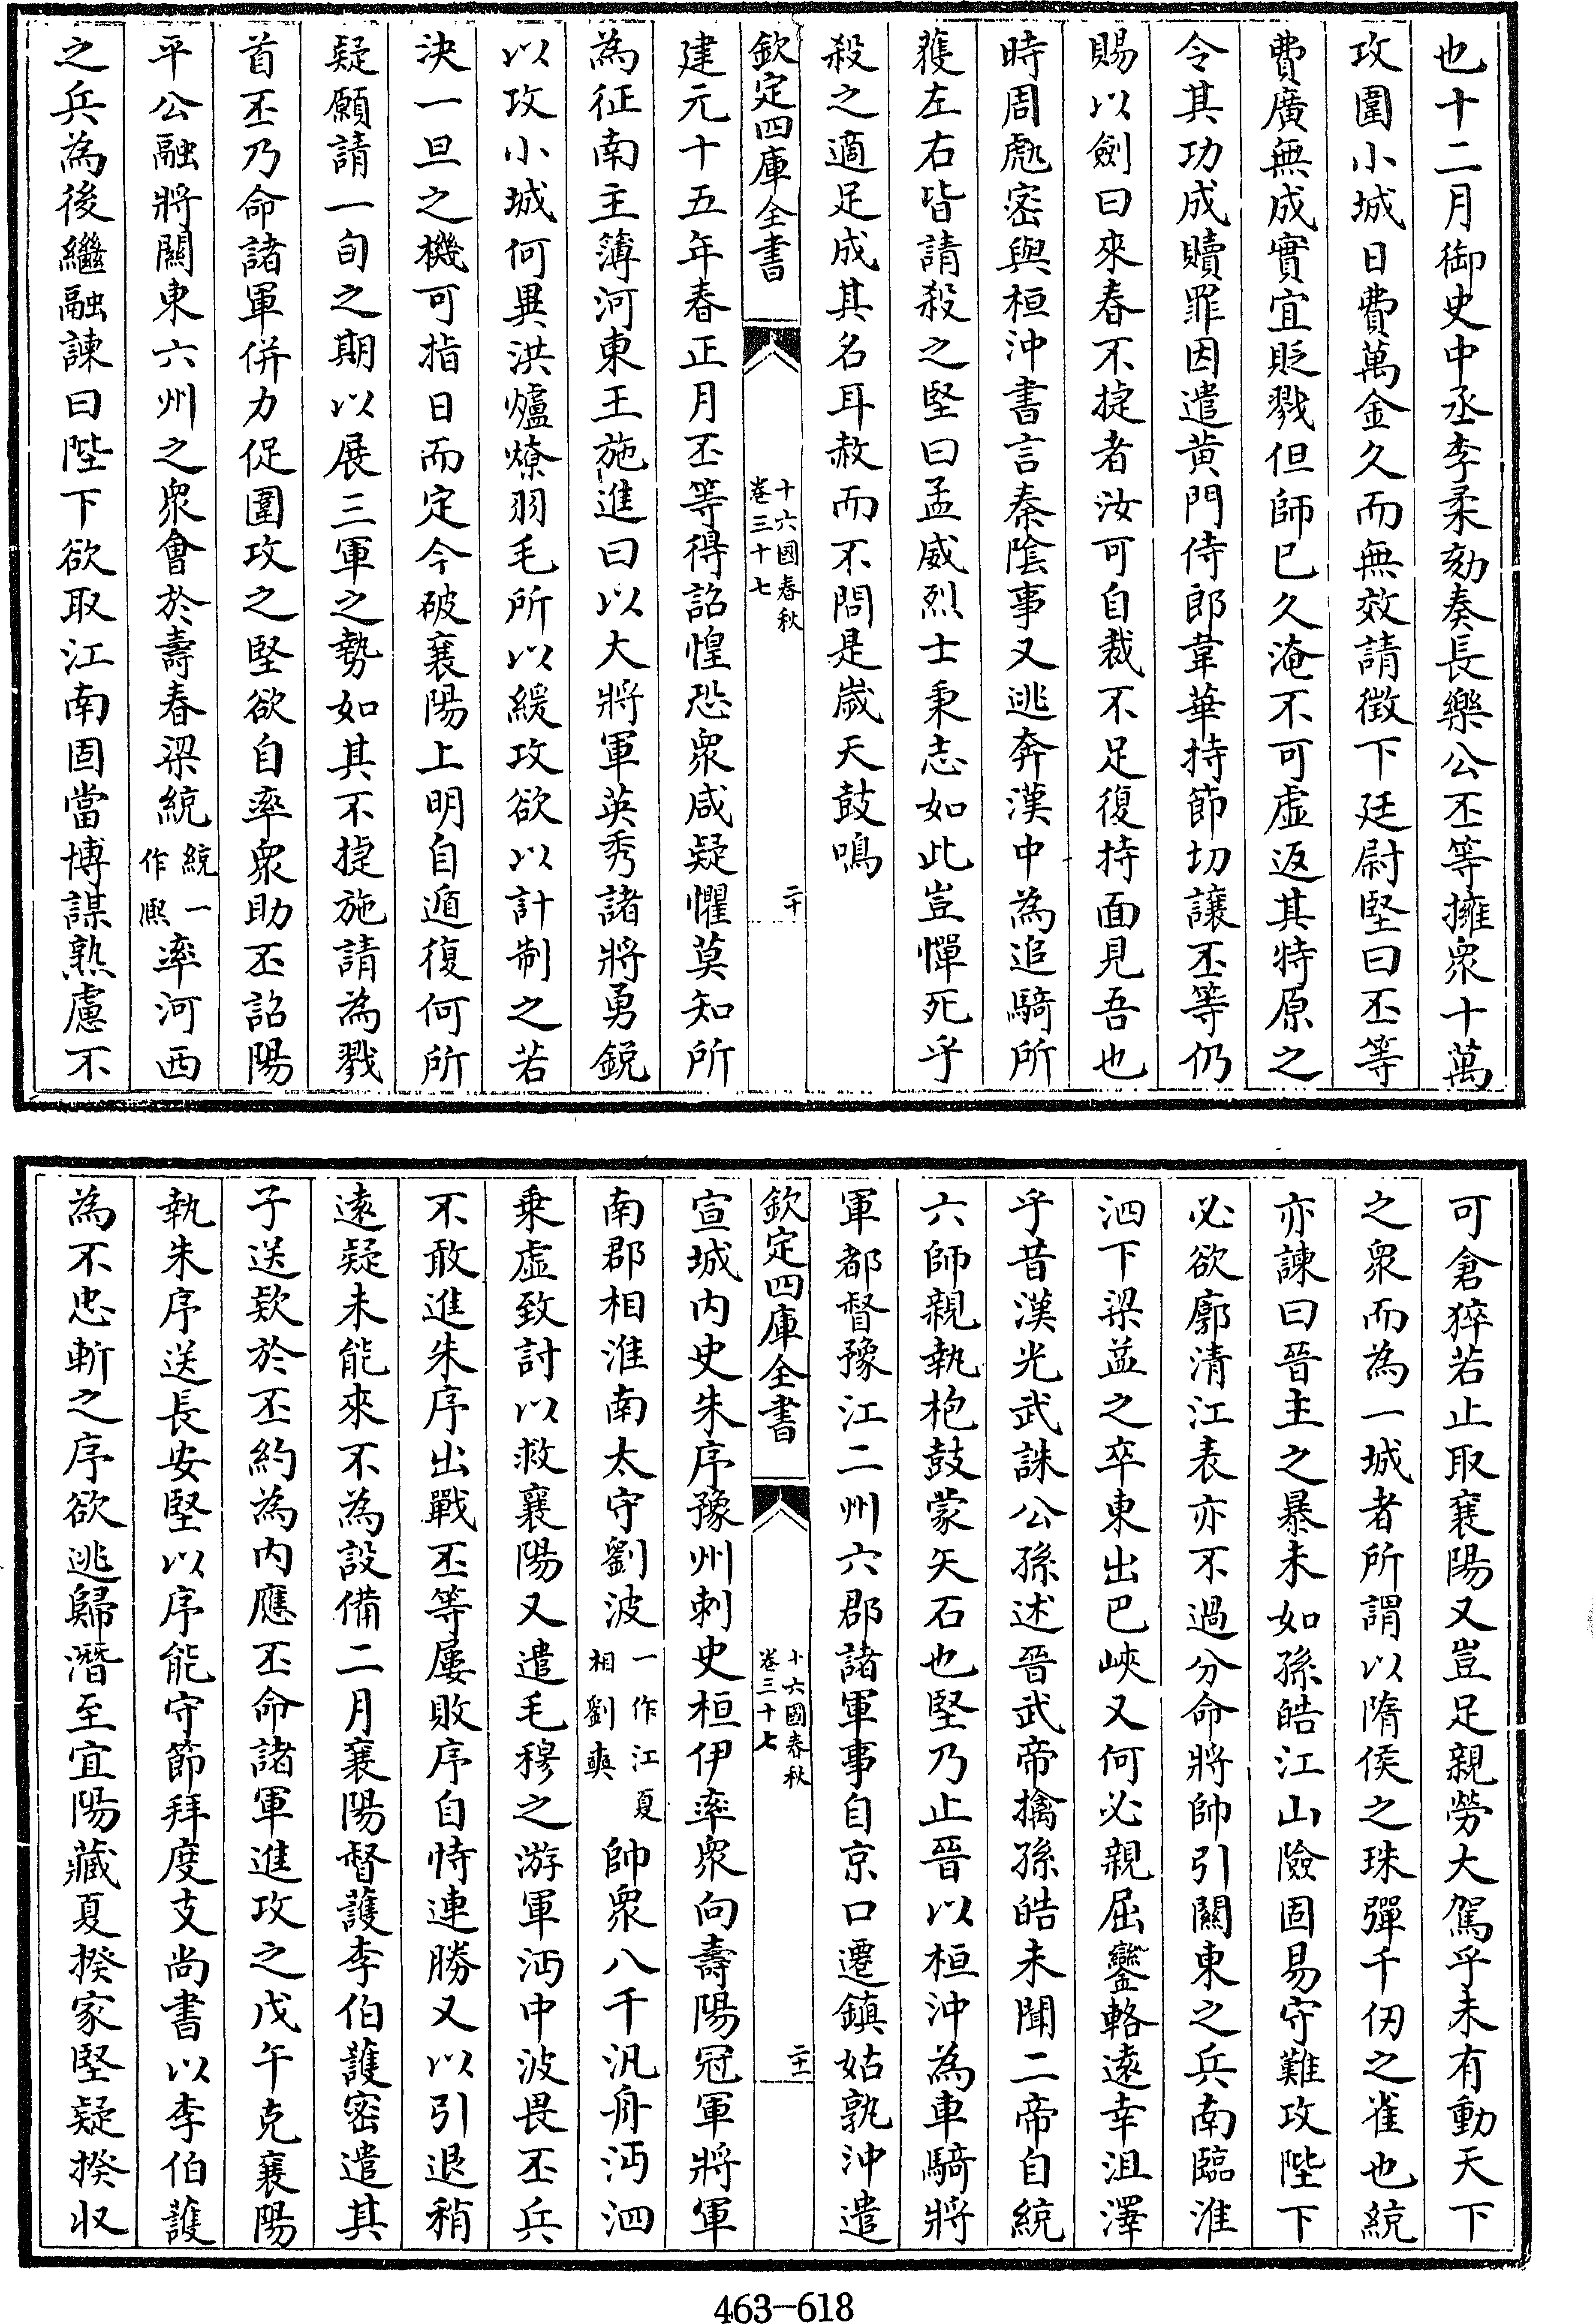 也十二月御史中丞李柔劾奏長樂公丕等擁衆十萬
攻圍小城日費萬金久而無效請徴下廷尉堅曰丕等
費廣無成實宜貶戮但師已久淹不可虛返其特原之
令其功成贖罪因遣黄門侍郎韋華持節切讓丕等仍
賜以劍曰來春不捷者汝可自裁不足復持面見吾也
時周虓密與桓沖書言秦陰事又逃奔漢中為追騎所
獲左右皆請殺之堅曰孟威烈士秉志如此豈憚死乎
殺之適足成其名耳赦而不問是嵗天鼓鳴
欽定四庫全書
十六國春秋
卷三十七
二十
建元十五年春正月丕等得詔惶恐衆咸疑懼莫知所
為征南主簿河東王施進曰以大將軍英秀諸將勇鋭
以攻小城何異洪爐燎羽毛所以緩攻欲以計制之若
決一旦之機可指日而定今破襄陽上明自遁復何所
疑願請一旬之期以展三軍之勢如其不捷施請為戮
首丕乃命諸軍併力促圍攻之堅欲自率衆助丕詔陽
平公融將關東六州之衆會於壽春梁統統一作熈率河西
之兵為後繼融諫曰陛下欲取江南固當博謀熟慮不
可倉猝若止取襄陽又豈足親勞大駕乎未有動天下
之衆而為一城者所謂以隋侯之珠彈千仞之雀也統
亦諫曰晉主之暴未如孫皓江山險固易守難攻陛下
必欲廓清江表亦不過分命將帥引關東之兵南臨淮
泗下梁益之卒東出巴峽又何必親屈鑾輅遠幸沮澤
乎昔漢光武誅公孫述晉武帝擒孫皓未聞二帝自統
六師親執枹鼓蒙矢石也堅乃止晉以桓沖為車騎將
軍都督豫江二州六郡諸軍事自京口遷鎮姑孰沖遣
欽定四庫全書
十六國春秋
卷三十七
二十一
宣城内史朱序豫州刺史桓伊率衆向壽陽冠軍將軍
南郡相淮南太守劉波一作江夏相劉奭帥衆八千汎舟沔泗
乗虛致討以救襄陽又遣毛穆之游軍沔中波畏丕兵
不敢進朱序出戰丕等屢敗序自恃連勝又以引退稍
遠疑未能來不為設備二月襄陽督護李伯護密遣其
子送欵於丕約為内應丕命諸軍進攻之戊午克襄陽
執朱序送長安堅以序能守節拜度支尚書以李伯護
為不忠斬之序欲逃歸潛至宜陽藏夏揆家堅疑揆收
463-618